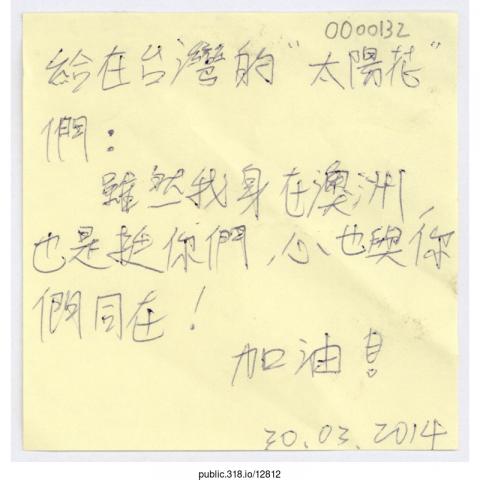 0000132
給在台灣的"太陽花"
們:
雖然我身在澳洲,
也是挺你們,心也與你
們同在!
加油!
30.03.2014
public.318.io/12812